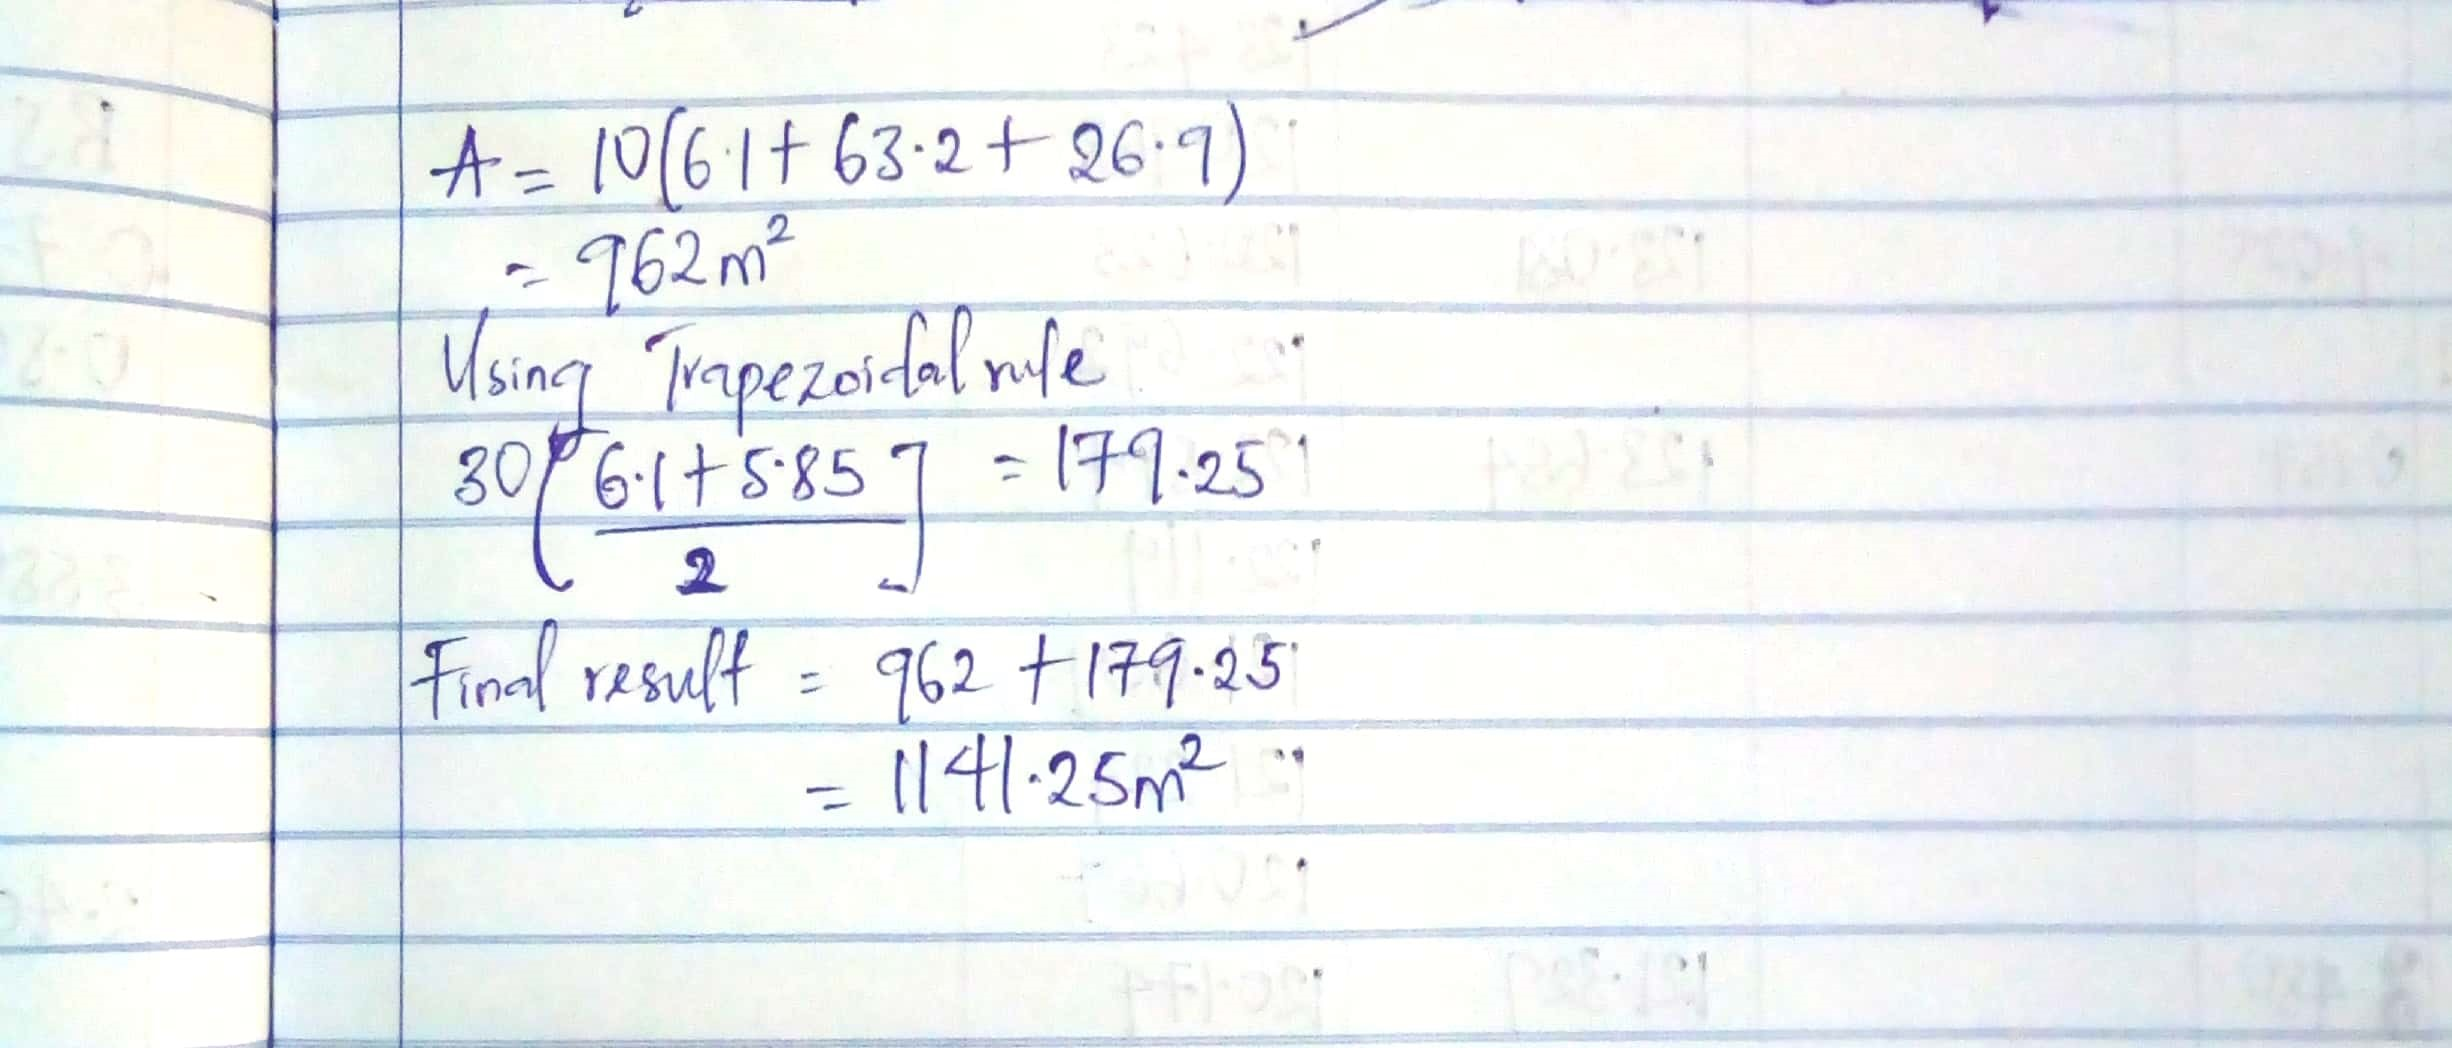 A = 10(6.1 + 63.2 + 26.9)
= 962 m²
Using Trapezoidal rule
30[6.1 + 5.85 / 2] = 179.25
Final result = 962 + 179.25
= 1141.25m²